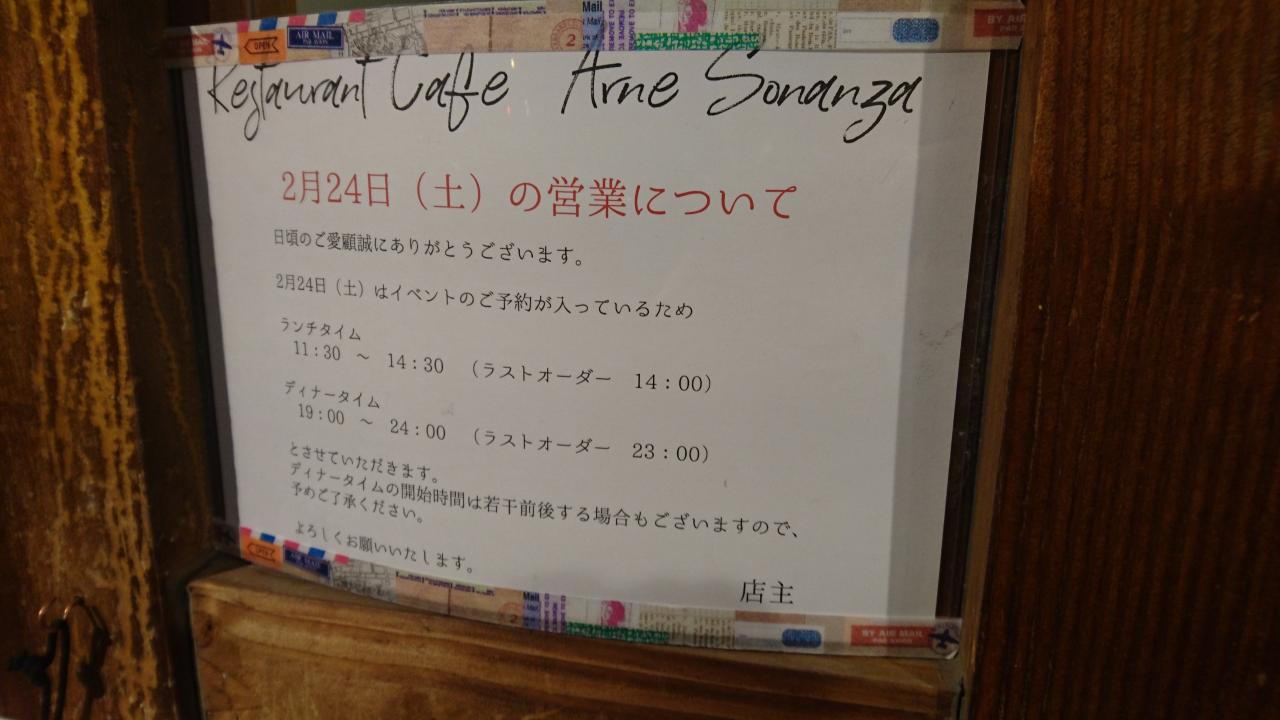 AIR MAIL
PAR AVION
OPEN
Restaurant Caffe Arne Sonanza
2月24日（土）の営業について
日頃のご愛顧誠にありがとうございます。
2月24日（土）はイベントのご予約が入っているため
ランチタイム
11:30 ～ 14:30 （ラストオーダー 14:00）
ディナータイム
19:00 ～ 24:00 （ラストオーダー 23:00）
とさせていただきます。
ディナータイムの開始時間は若干前後する場合もございますので、
予めご了承ください。
よろしくお願いいたします。
店主
OPEN
AIR MAIL
BY AIR MAIL
PAR AVION